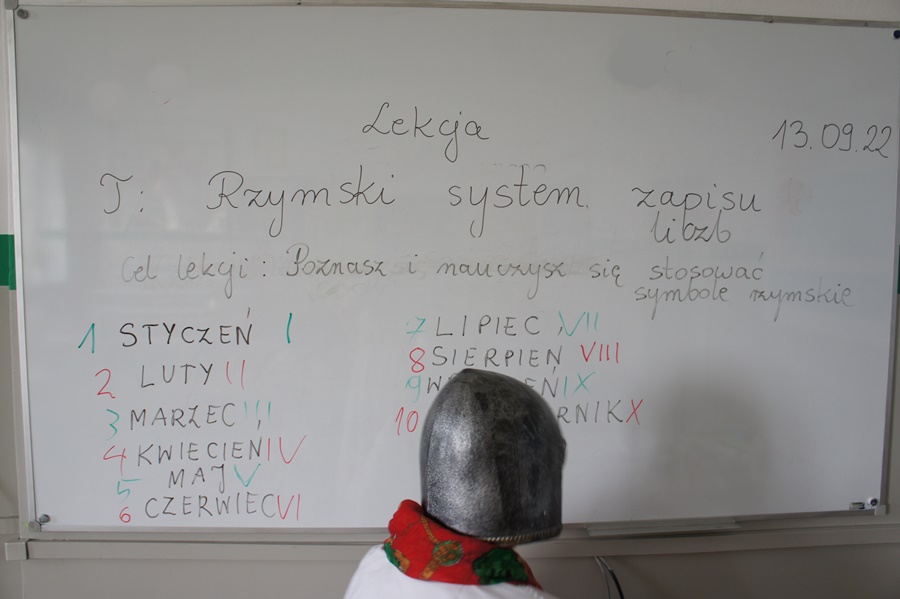 Lekcja
13.09.22
T: Rzymski system zapisu
liczb
Cel lekcji: Poznasz i nauczysz się stosować
symbole rzymskie
1 STYCZEŃ I
2 LUTY II
3 MARZEC III
4 KWIECIEŃ IV
5 MAJ V
6 CZERWIEC VI
7 LIPIEC VII
8 SIERPIEŃ VIII
9 IX
10 X